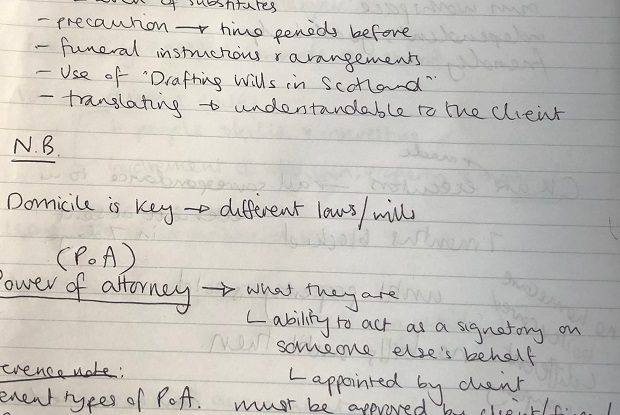 of substitutes
- precaution → time periods before
- funeral instructions & arangements
- Use of "Drafting Wills in Scotland"
- translating → understandable to the client
N.B.
Domicile is key → different laws/wills
(PoA)
Power of attorney → what they are
ability to act as a signatory on
someone else's behalf
erence note:
appointed by client
erent types of P.o.A. must be approved by client/